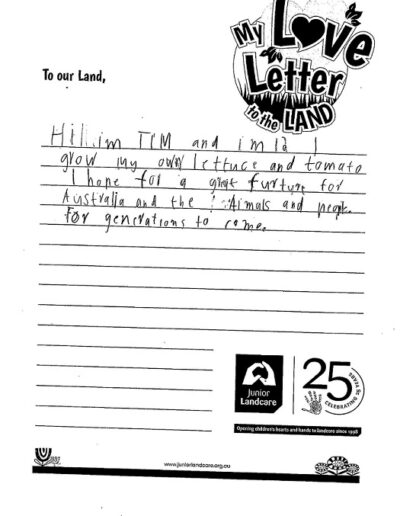 My Love
Letter
to the LAND
To our Land,
Hi im TCM and im 12 I
grow my own lettuce and tomato
I hope for a great furture for
Australia and the Aimals and peopl.
for generations to come.
Junior
Landcare
25
CELEBRATING 25 YEARS
Opening children's hearts and hands to landcare since 1998
www.juniorlandcare.org.au